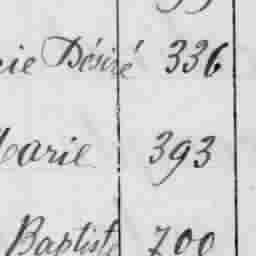 Désiré 336
Marie 393
Baptiste 700